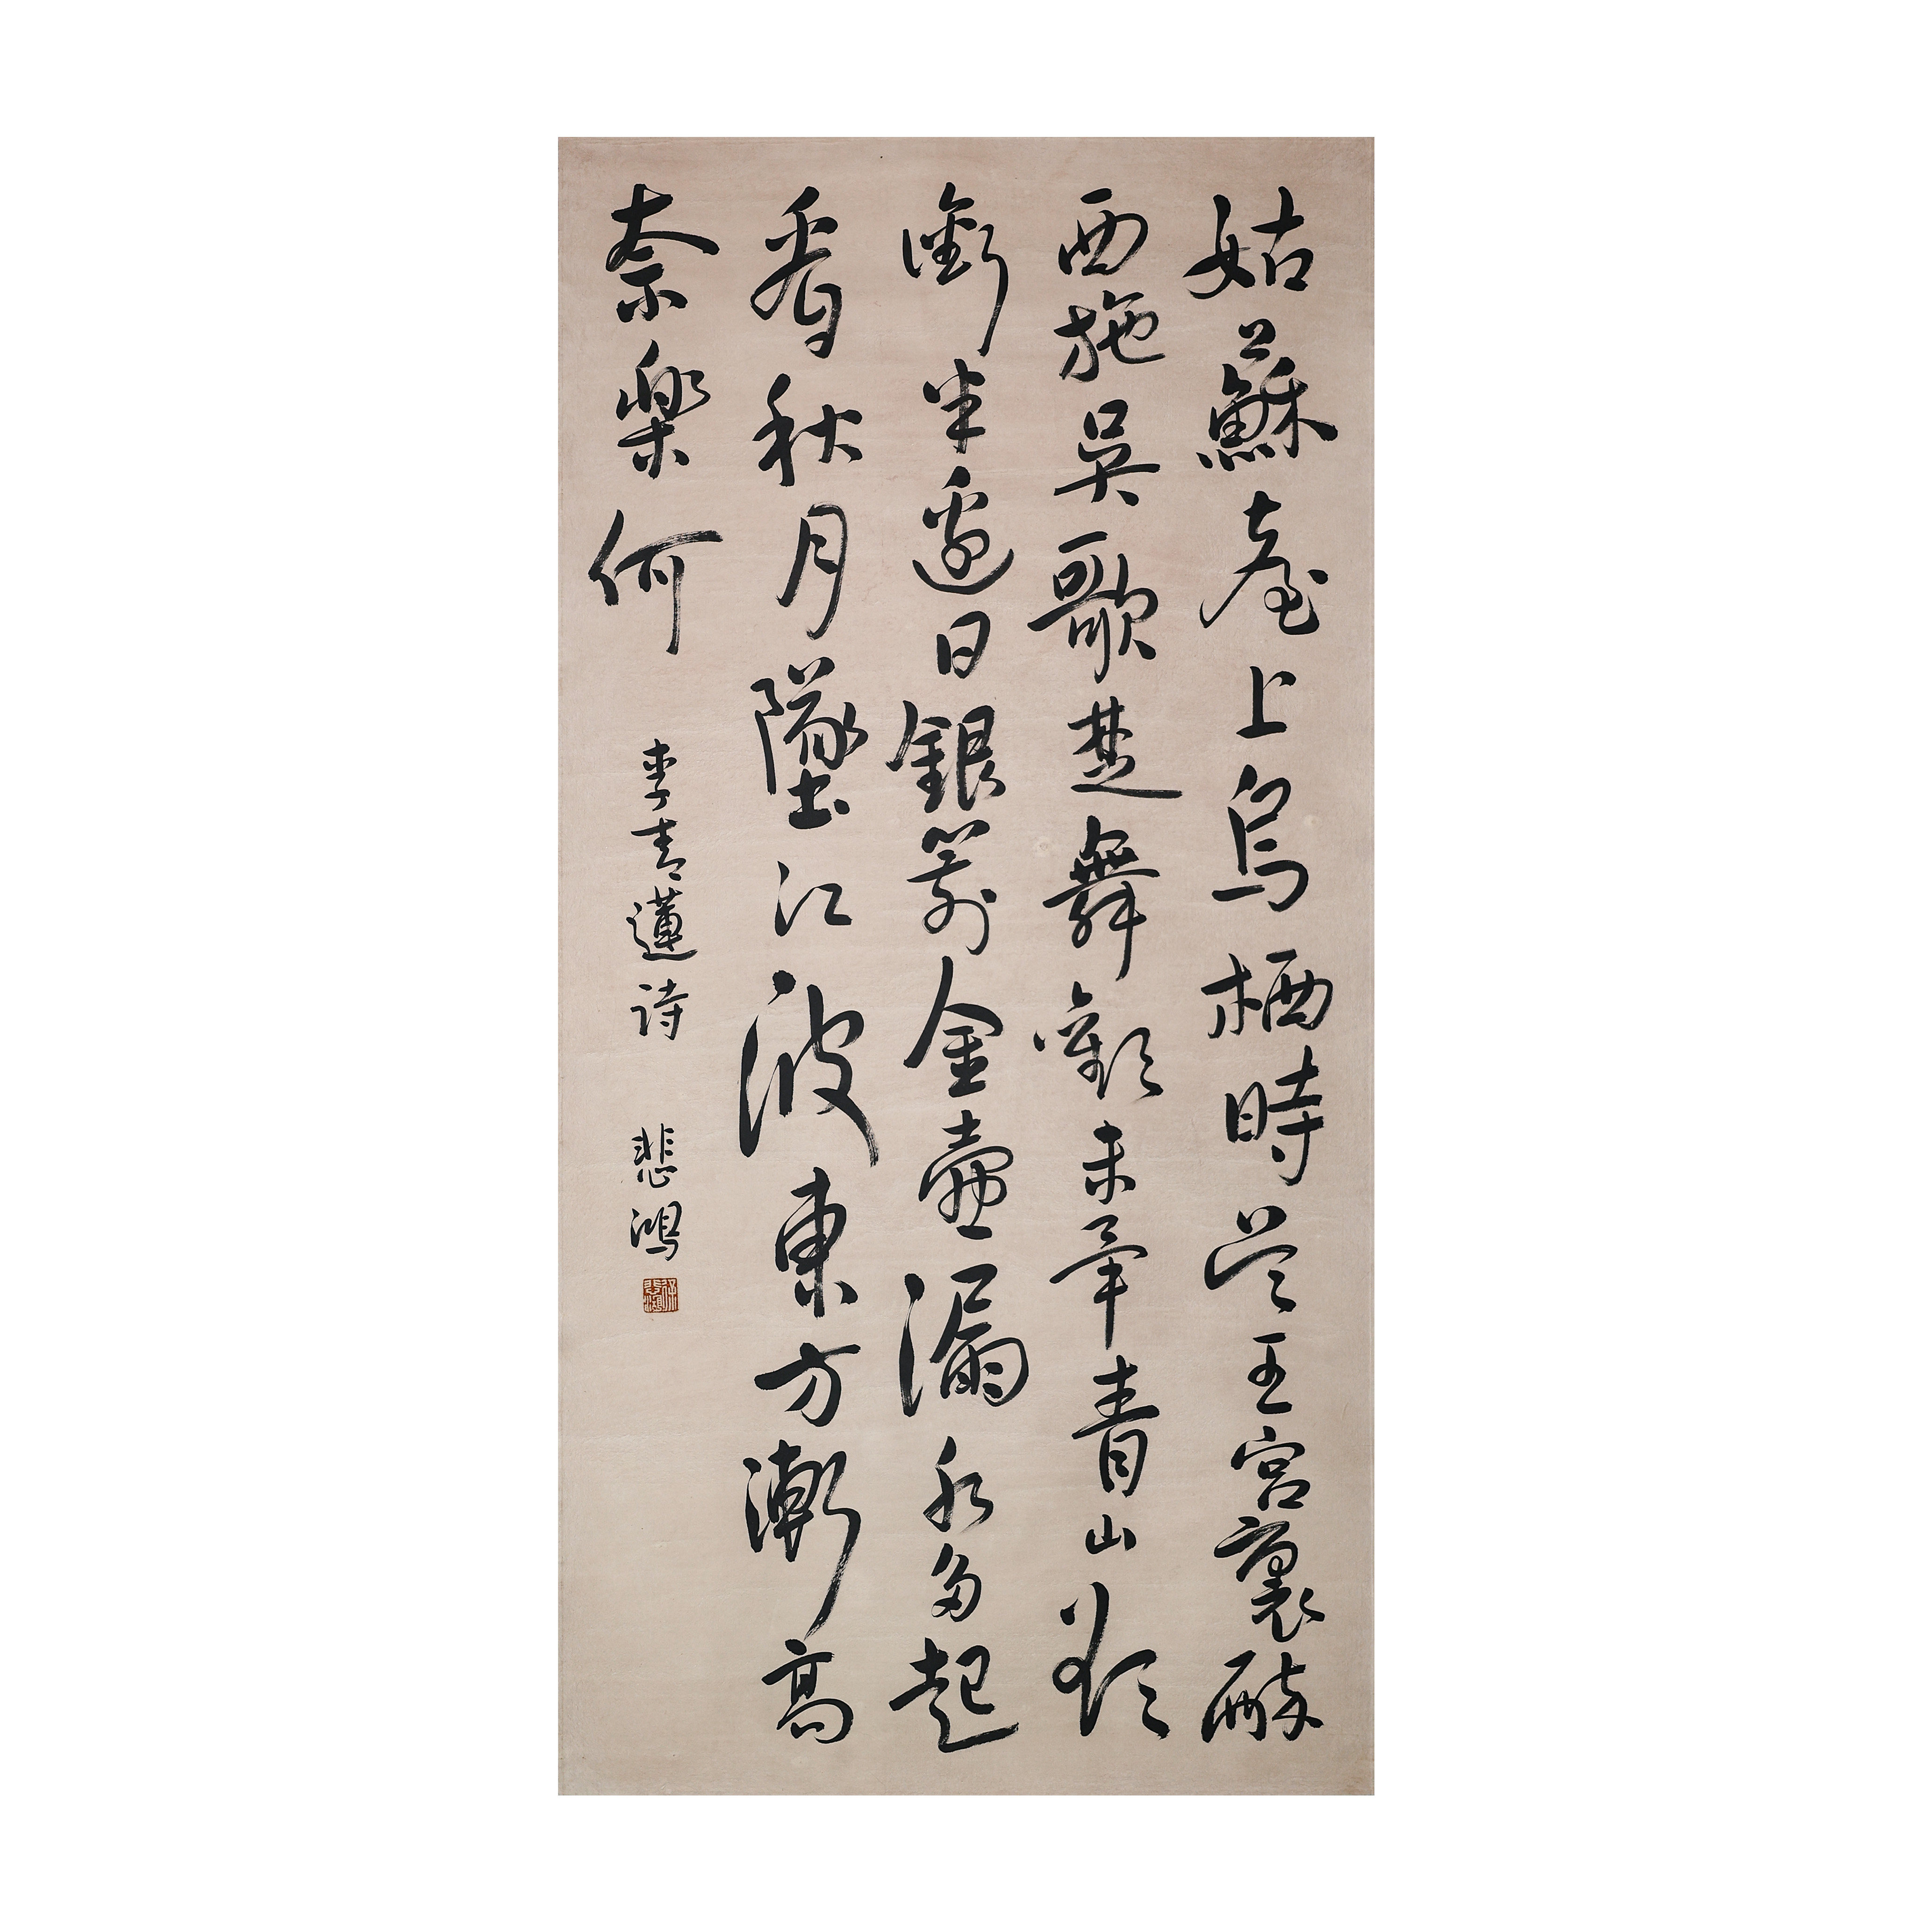 姑蘇臺上烏栖時吳王宮裏醉
西施吳歌楚舞歡未畢青山欲
銜半邊日銀箭金壺漏水多起
看秋月墜江波東方漸高
奈樂何 李青蓮詩 悲鴻
徐悲鴻